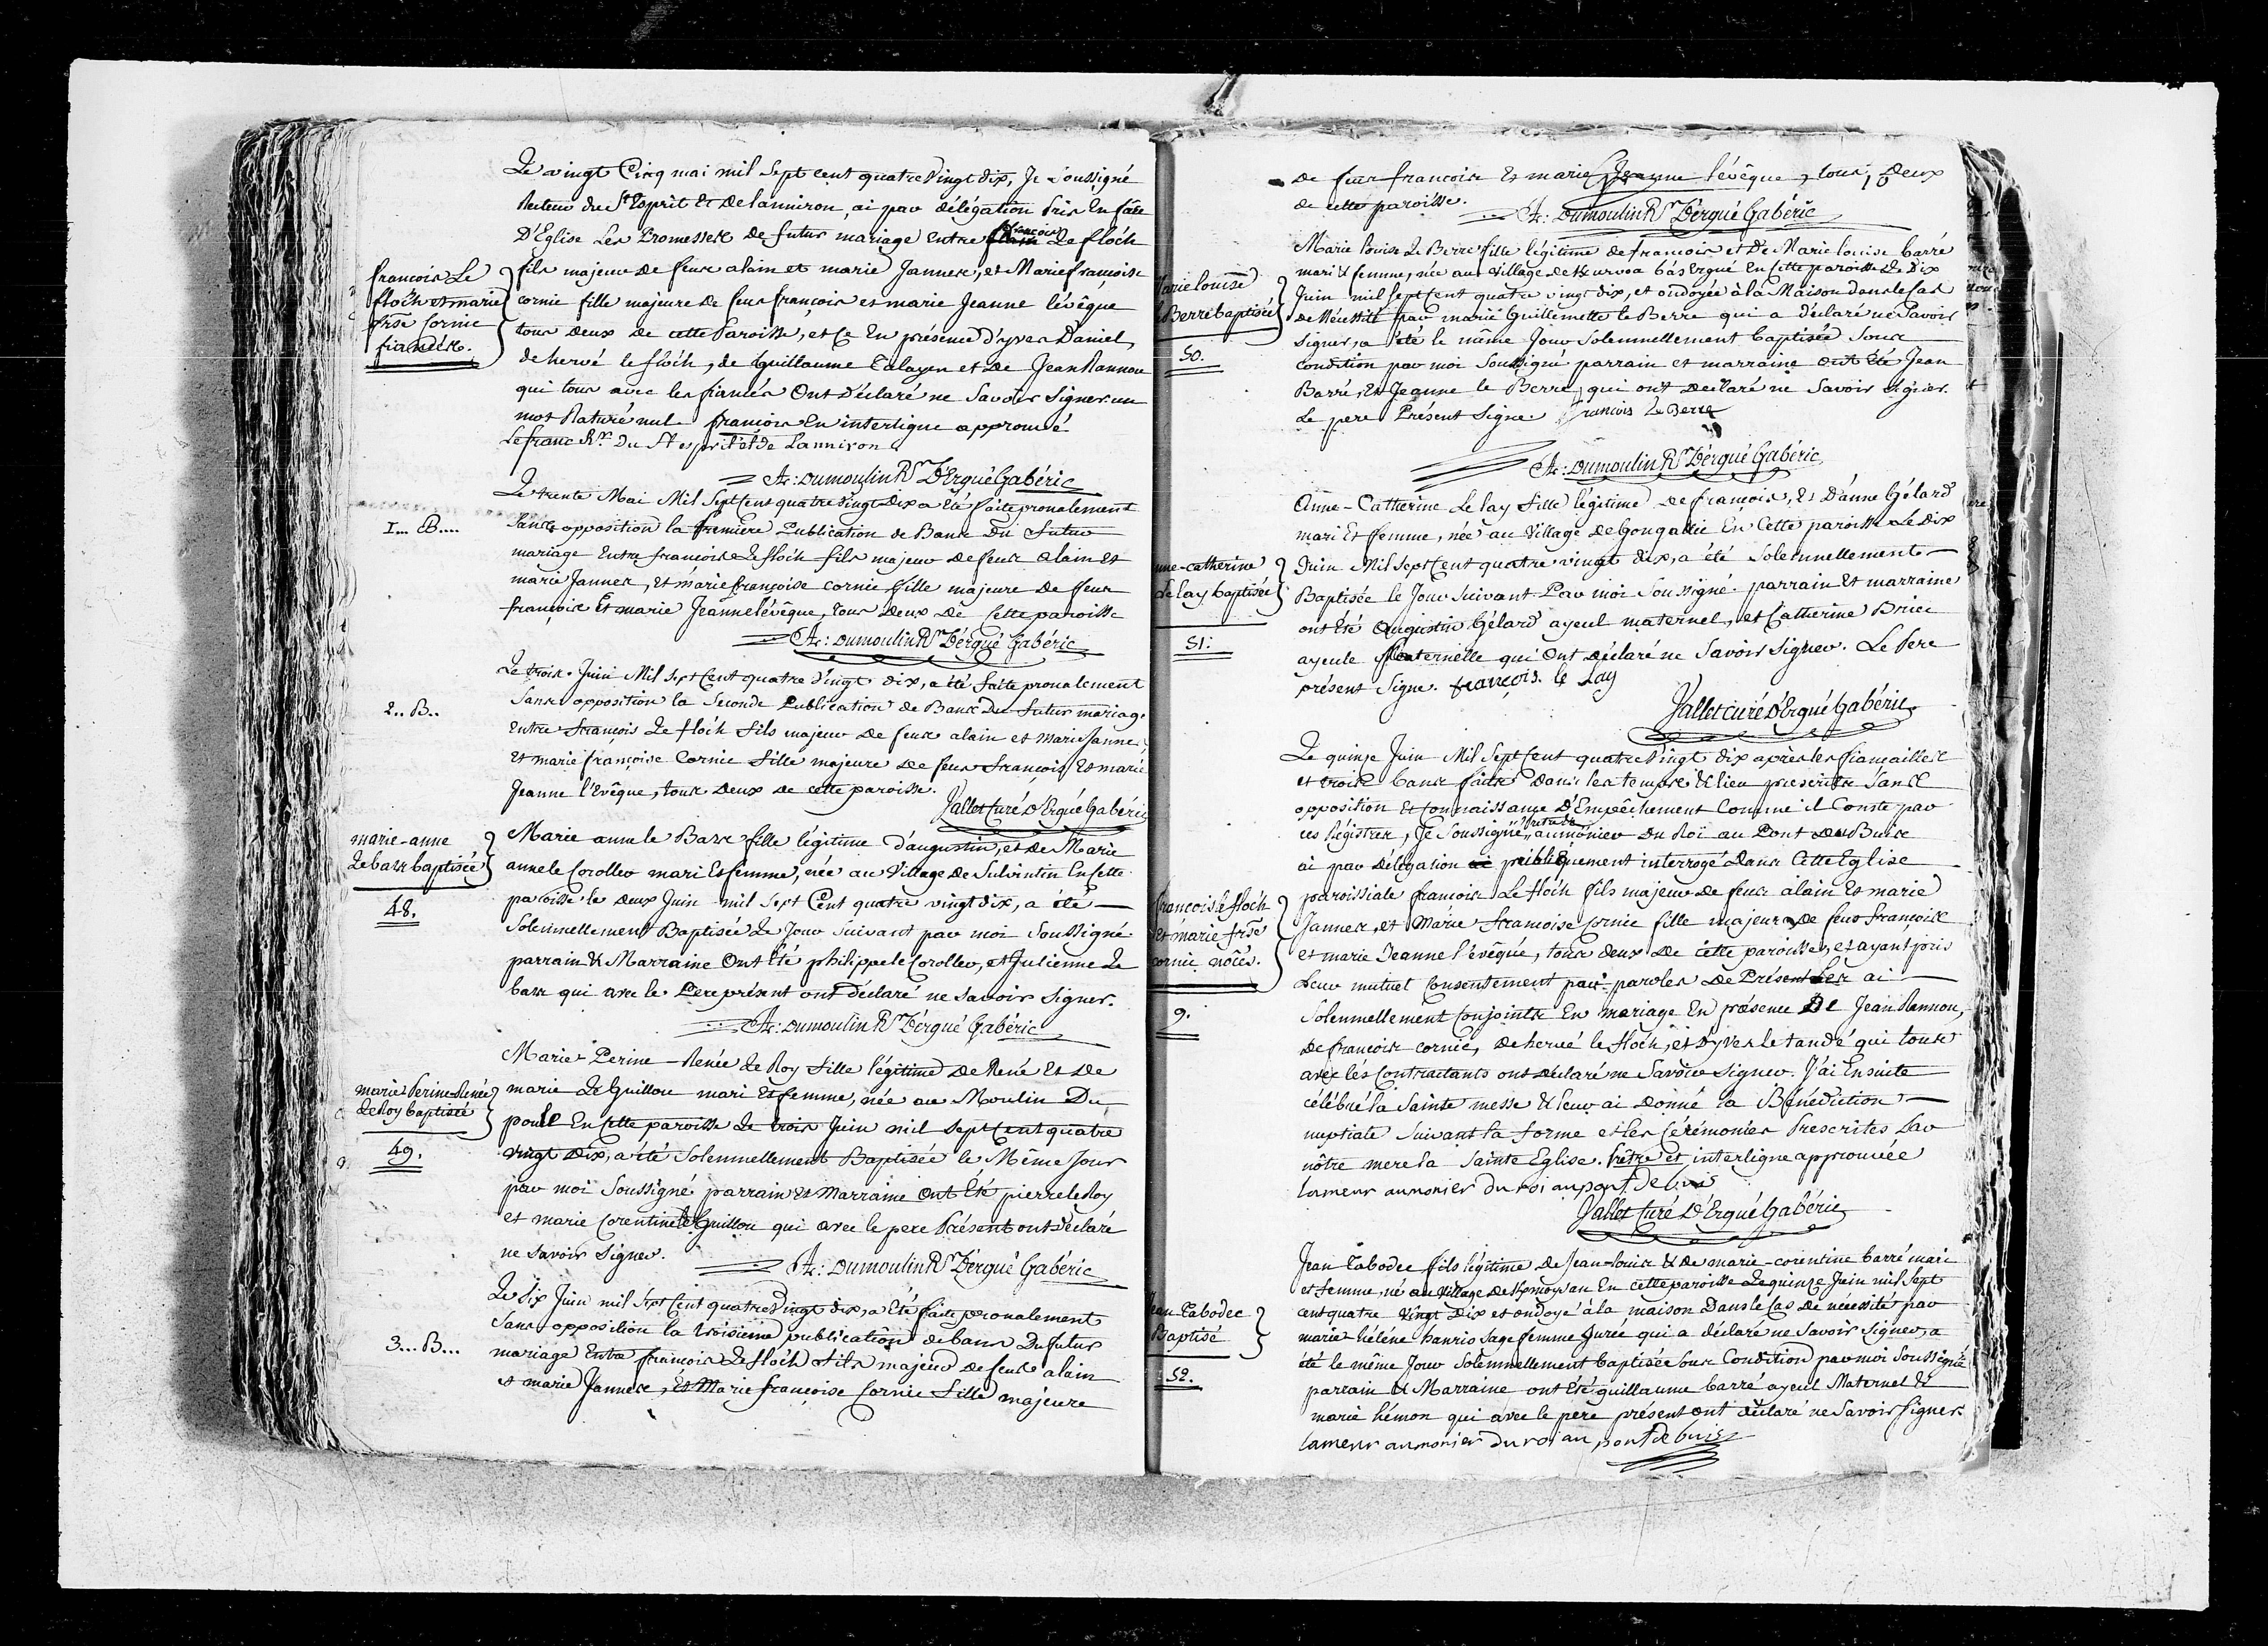 Le vingt Cinq mai mil Sept cent quatre Vingt dix, Je Soussigné
Recteur du St Esprit Et de Lanniron, ai par délégation Pris En face
D'Eglise Les Promesses de futur mariage entre françois Le flóch
francois Le
flóch et marie
frse Cornic
fiancés.
fils majeur de feux alain et marie Jannes, et Marie françoise
cornic fille majeure de feux françois et marie Jeanne lévêque
tous deux de cette Paroisse, et Ce En présence d'yves Daniel,
de hervé le flóch, de Guillaume Talayen et de Jean Rannou
qui tous avec les fiancés Ont Déclaré ne Savoir Signer. un
mot Raturé nul. françois En interligne approuvé
Lefranc Rr. du St esprit et de Lanniron
A: Dumoulin Rr D'Ergué Gabéric
1... B....
Le trente Mai Mil Sept Cent quatre Vingt Dix a Eté faite pronalement
Sans opposition la première Publication de Bans du futur
mariage Entre françois Le flóch fils majeur de feux alain Et
marie Jannes, Et marie françoise cornic fille majeure de feux
françois Et marie Jeanne lévêque, tous deux de Cette paroisse
A: Dumoulin Rr D'érgué Gabéric
2.. B..
Le trois Juin Mil Sept Cent quatre Vingt dix, a été faite pronalement
Sans opposition la Seconde Publication de Bans du futur mariage
Entre françois Le flóch fils majeur de feux alain et marie Jannes,
Et marie françoise Cornic fille majeure de feux francois Et marie
Jeanne l'Evêque, tous Deux de cette paroisse.
Jallet Curé D'Ergué Gabéric
marie-anne
Le bars baptisée
48.
Marie anne le Bars fille légitime d'augustin, et de Marie
anne le Coroller mari Et femme, née au Village de Sulvintin En Cette
paroisse le deux Juin mil Sept Cent quatre vingt dix, a été
Solennellement Baptisée Le Jour Suivant par moi Soussigné
parrain & Marraine Ont Eté philippe le Coroller, et Julienne Le
bars qui avec le Pere présent ont déclaré ne savoir Signer.
A: Dumoulin Rr D'érgué Gabéric
marie Perine Renée
Le Roy baptisée
49.
Marie Perine Renée Le Roy fille légitime de René Et de
marie Le Guillou mari Et femme, née au Moulin Du
En Cette paroisse Le trois Juin mil Sept Cent quatre
vingt Dix, a été Solennellement Baptisée le Même Jour
par moi Soussigné parrain Et Marraine Ont Eté pierre le Roy
et marie Corentine le Guillou qui avec le pere Présent ont Déclaré
ne Savoir Signer.
A: Dumoulin Rr D'érgué Gabéric
3... B...
Le Six Juin mil Sept Cent quatre Vingt dix, a Eté faite pronalement
Sans opposition la troisième publication de bans Du futur
mariage Entre françois Le flóch fils majeur de feux alain
et marie Jannes, Et Marie françoise Cornic fille majeure
de feux francois Et marie Jeanne lévêque, tous Deux
de cette paroisse.
A: Dumoulin Rr D'érgué Gabéric
Marie louise
Le Berre baptisée
50.
Marie louise Le Berre fille légitime de francois et de Marie louise barré
mari & femme, née au Village de bás Ergué En Cette paroisse Le Dix
Juin mil Sept Cent quatre vingt dix, et ondoyée à la Maison dans le Cas
de Nécessité par marie Guillemette le Berre qui a déclaré ne Savoir
Signer, a été le même Jour Solennellement baptisée Sous
condition par moi Soussigné parrain et marraine ont Eté Jean
Barré, Et Jeanne le Berre, qui ont déclaré ne Savoir signer.
Le pere Présent Signe. francois Le Berre
A: Dumoulin Rr D'érgué Gabéric
nne-catherine
Le lay baptisée
51.
Anne-Catherine Le lay fille légitime de françois, Et D'anne Gélard
mari Et femme, née au Village de Congallic En Cette paroisse Le Dix
Juin Mil Sept Cent quatre vingt dix, a été Solennellement
Baptisée le Jour Suivant Par moi Soussigné. parrain Et marraine
ont Eté Augustin Gélard ayeul maternel, et Catherine Brice
ayeule Paternelle qui Ont déclaré ne Savoir Signer. Le Pere
présent Signe. francois le Lay
Jallet curé D'Ergué Gabéric
Le quinze Juin Mil Sept Cent quatre Vingt dix après les fiançailles
et trois bans faits Dans les temps & lieu prescrits Sans
opposition Et Connaissance D'Empêchement Comme il Conste par
ces Régistres, Je Soussigné, prêtre aumônier Du Roi au Pont de Buis
ai par délégation publiquement interrogé Dans Cette Eglise
francois le flóch
et marie frse
cornic nôces.
9.
paroissiale françois Le flóch fils majeur de feux alain Et marie
Jannes, et Marie francoise Cornic fille majeure de feus françois
et marie Jeanne l'évêque, tous deux de cette paroisse, et ayant pris
Leur mutuel Consentement par paroles de Présent Les ai
Solennellement Conjoints En mariage En présence De Jean Rannou,
de françois cornic, de hervé le flóch, et D'yves le tandé qui tous
avec les Contractants ont déclaré ne Savoir Signer. J'ai Ensuite
célébré la Sainte messe & leur ai Donné la Bénédiction
nuptiale Suivant la forme et les Cérémonies Prescrites Par
nôtre mere la Sainte Eglise. Prêtre et interligne approuvée
lameur aumonier du roi au pont de buis
Jallet Curé D'Ergué Gabéric
Jean Tabodec
Baptisé
52.
Jean Tabodec fils légitime de Jean-louis & de marie-corentine barré mari
et femme, né au Village de En cette paroisse Le quinze Juin mil Sept
cent quatre Vingt Dix et ondoyé à la maison Dans le Cas de nécessité par
marie héléne hanrio Sage femme Jurée qui a déclaré ne Savoir Signer, a
été le même Jour Solennellement baptisée Sous Condition par moi Soussigné
parrain & Marraine ont Eté guillaume barré ayeul Maternel &
marie hémon qui avec le pere présent ont déclaré ne Savoir Signer
lameur aumonier du roi au pont de buis